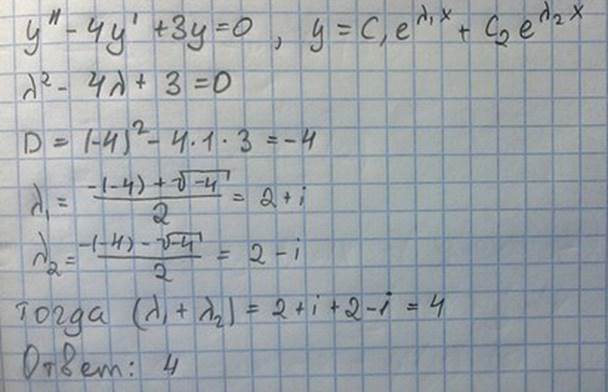 y'' - 4y' + 3y = 0 , y = C₁e^{λ₁x} + C₂e^{λ₂x}
λ² - 4λ + 3 = 0
D = (-4)² - 4·1·3 = -4
λ₁ = (-(-4) + √-4) / 2 = 2 + i
λ₂ = (-(-4) - √-4) / 2 = 2 - i
тогда (λ₁ + λ₂) = 2 + i + 2 - i = 4
Ответ: 4